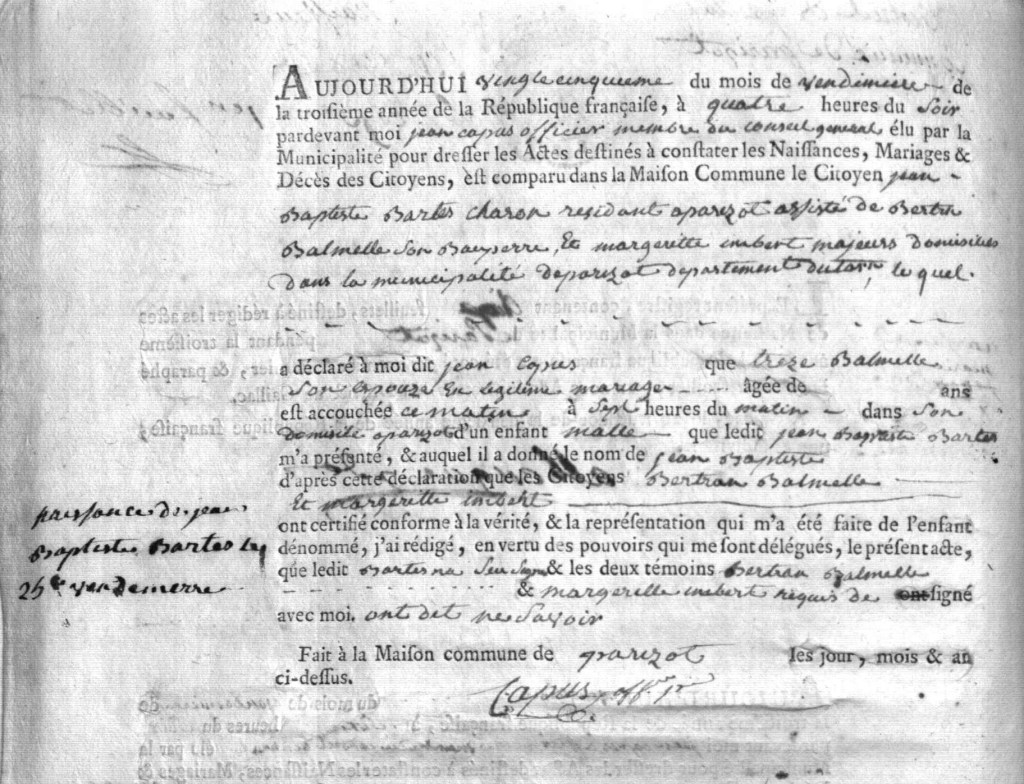 AUJOURD'HUI vingt cinquieme du mois de vendimiere de
la troisième année de la République française, à quatre heures du Soir
pardevant moi jean capus officier membre du conseil general élu par la
Municipalité pour dresser les Actes destinés à constater les Naissances, Mariages &
Décès des Citoyens, est comparu dans la Maison Commune le Citoyen jean
Baptiste Bartes charon residant aparizot assisté de Bertrn
Balmelle Son Bauperre, Et margeritte imbert majeurs domisiliés
Dans la municipalité deparizot departement dutarn, le quel
a déclaré à moi dit jean Capus que treze Balmelle
Son Epouze En legitime mariage âgée de ans
est accouchée ce matin à Sept heures du matin dans Son
domisile aparizot d'un enfant malle que ledit jean Baptiste Bartes
m'a présenté, & auquel il a donné le nom de jean Baptiste
d'après cette déclaration que les Citoyens Bertran Balmelle
Et margerette imbert
ont certifié conforme à la vérité, & la représentation qui m'a été faite de l'enfant
dénommé, j'ai rédigé, en vertu des pouvoirs qui me sont délégués, le présent acte,
que ledit Bartes na Seu Signe & les deux témoins Bertran Balmelle
& margerette imbert requis de ont signé
avec moi. ont det ne Savoir
Fait à la Maison commune de parizot les jour, mois & an
ci-dessus.
Capus off. p.
de jean
Baptiste Bartes le
25e vendemerre